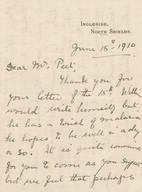 INGLESIDE,
NORTH SHIELDS.
June 15th, 1910
Dear Mr. Peet.
Thank you for
your letter of the 13th. Willie
would write himself but
he has a twist of malaria
he hopes to be well in a day
or so. It is quite convenient
for you to come as you
but we feel that perhaps